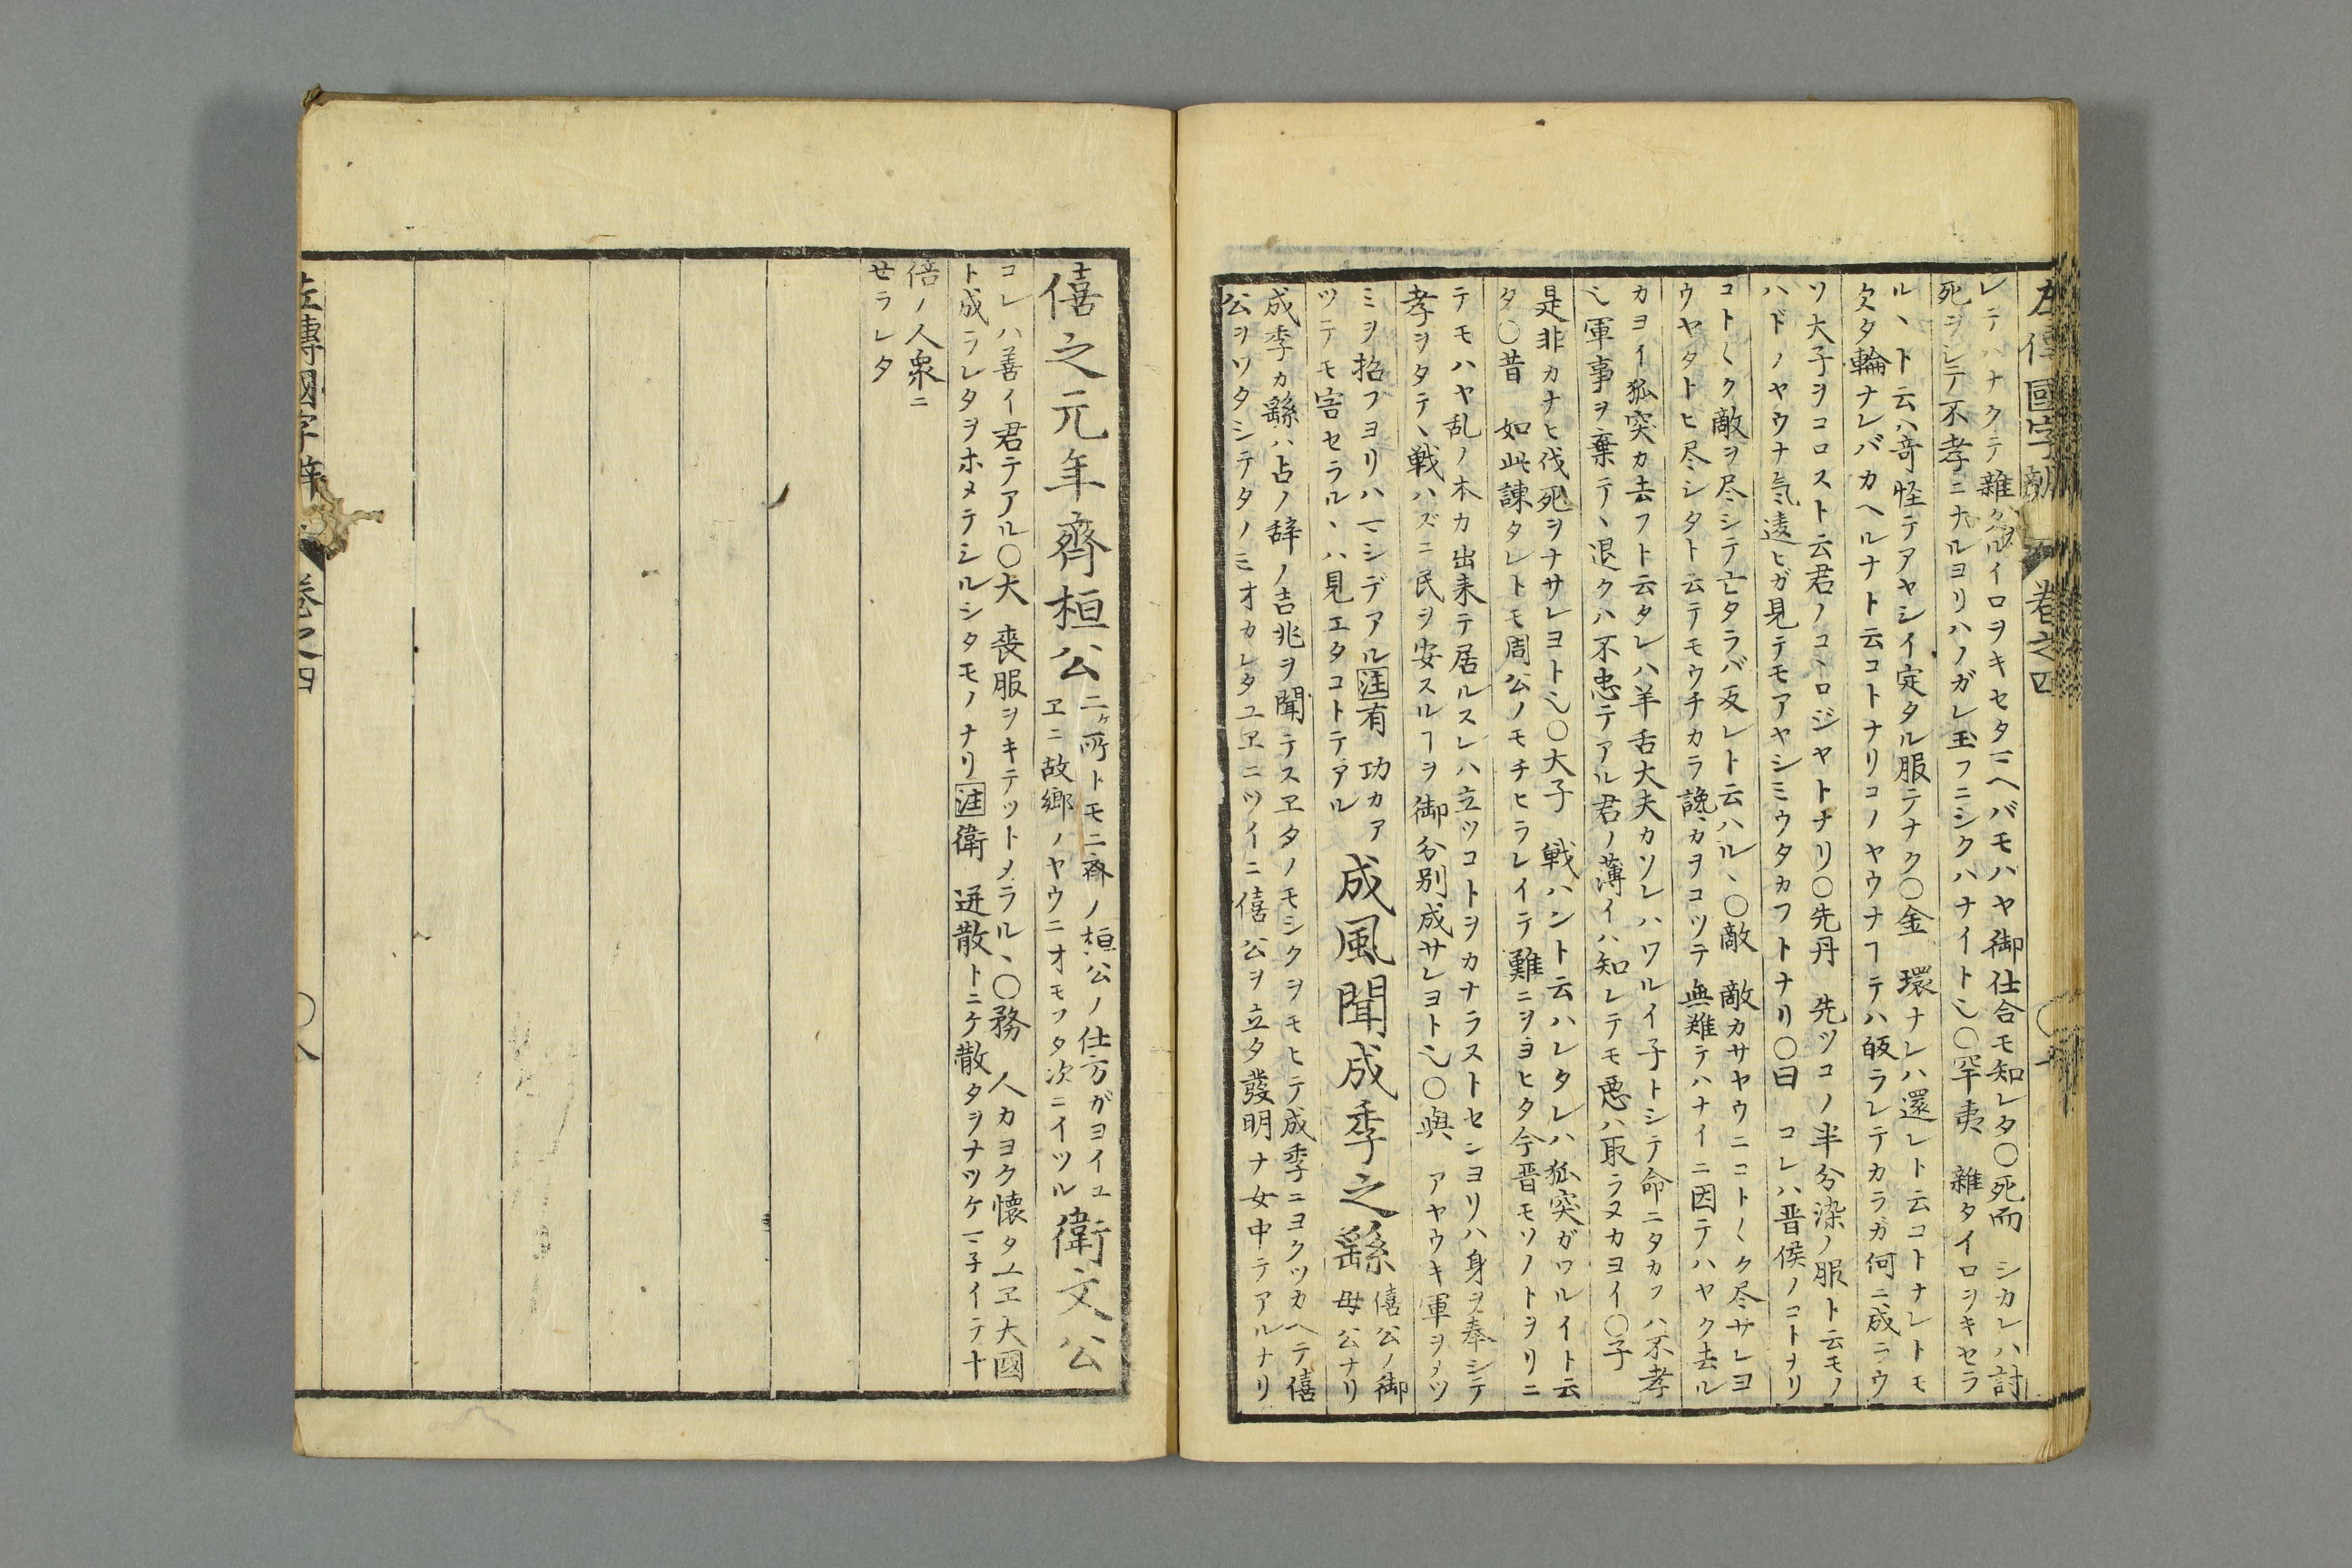 左傳國字辯 卷之四
レテハナクテ雜タルイロヲキセタニヘバモハヤ御仕合モ知レタ〇死而 シカレハ討
死ヲシテ不孝ニナルヨリハノガレ玉フニシクハナイト也〇罕夷 雜タイロヲキセラ
ル丶ト云ハ奇怪テアヤシイ定タル服テナク〇金 環ナレハ還レト云コトナレトモ
欠タ輪ナレバカヘルナト云コトナリコノヤウナヿテハ皈ラレテカラガ何ニ成ニウ
ソ大子ヲコロスト云君ノコヽロジヤトナリ〇先丹 先ツコノ半分染ノ服ト云モノ
ハドノヤウナ氣違ヒガ見テモアヤシミウタカフトナリ〇曰 コレハ晋侯ノコトナリ
コト〱ク敵ヲ尽シテ亡タラバ反レト云ハル丶〇敵 敵カサヤウニコト〱ク尽サレヨ
ウヤタトヒ尽シタト云テモウチカラ讒カヲコツテ無難テハナイニ因テハヤク去ル
カヨイ狐突カ去フト云タレハ羊舌大夫カソレハワルイ子トシテ命ニタカフハ不孝
也軍事ヲ棄テ丶退クハ不忠テアル君ノ薄イハ知レテモ惡ハ取ラヌカヨイ〇子
是非カナヒ伐死ヲナサレヨト也〇大子 戰ハント云ハレタレハ狐突ガワルイト云
タ〇昔 如此諫タレトモ周公ノモチヒラレイテ難ニヲヨヒタ今晋モソノトヲリニ
テモハヤ乱ノ本カ出来テ居ルスレハ立ツコトヲカナラストセンヨリハ身ヲ奉シテ
孝ヲタテ丶戰ハズニ民ヲ安スルヿヲ御分別成サレヨト也〇與 アヤウキ軍ヲメツ
ミヲ招フヨリハマシデアル注有 功カア
ツテモ害セラル丶ハ見エタコトテアル
成風聞成季之繇
僖公ノ御
母公ナリ
成季カ繇ハ占ノ辞ノ吉兆ヲ聞テスヱタノモシクヲモヒテ成季ニヨクツカヘテ僖
公ヲソタシテタノミオカレタユヱニツイニ僖公ヲ立タ發明ナ女中テアルナリ
僖之元年齊桓公
二ケ所トモニ齊ノ桓公ノ仕方ガヨイユ
ヱニ故郷ノヤウニオモフタ次ニイツル
衛文公
コレハ善イ君テアル〇大 喪服ヲキテツトメラル丶〇務 人カヨク懐タユヱ大國
ト成ラレタヲホメテシルシタモノナリ注衛 迸散トニケ散タヲナツケマ子イテ十
倍ノ人衆ニ
せラレタ
左傳國字辯 卷之四 〇八